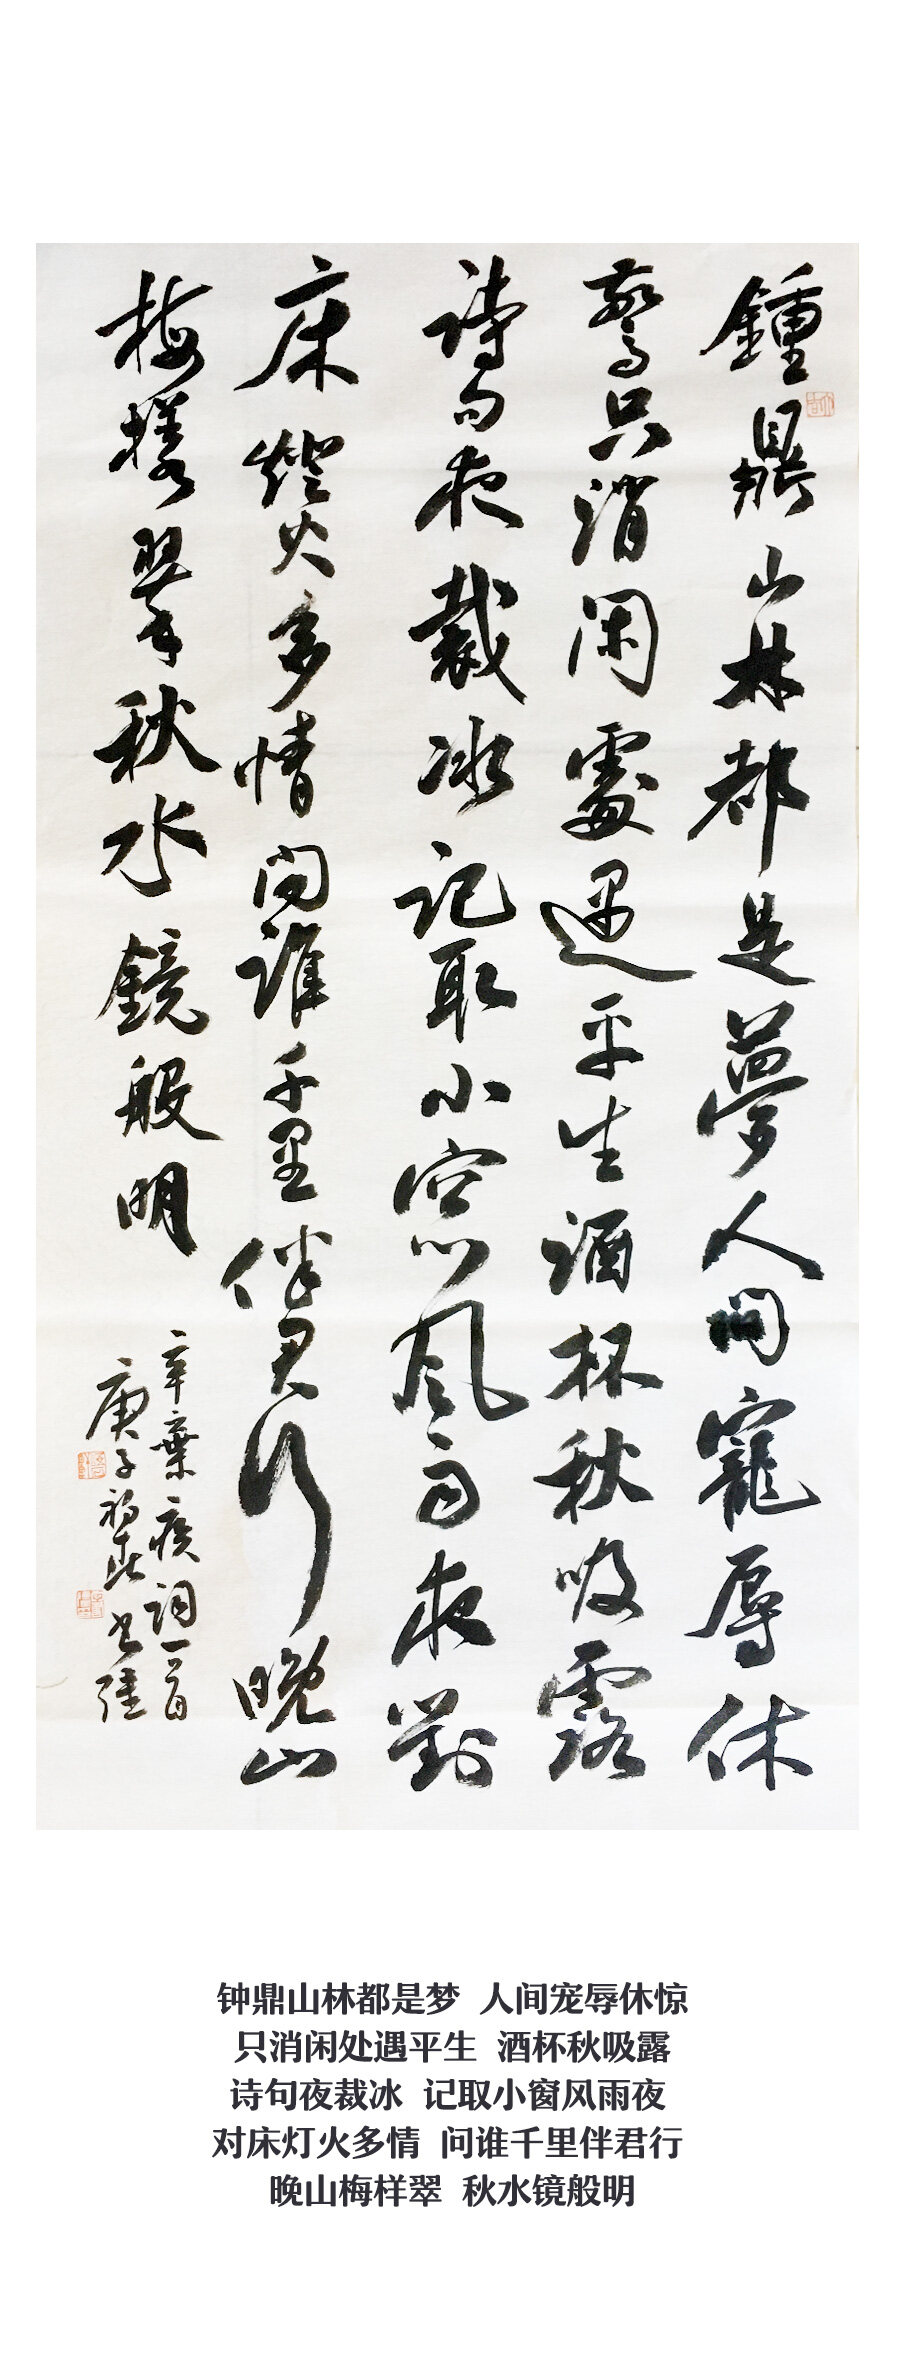 鍾鼎山林都是夢人间寵辱休
驚只消闲處遇平生酒杯秋吸露
诗句夜裁冰记取小窓风雨夜對
床燈火多情问谁千里伴君行晚山
梅樣翠秋水鏡般明
辛棄疾词一首
庚子初
钟鼎山林都是梦 人间宠辱休惊
只消闲处遇平生 酒杯秋吸露
诗句夜裁冰 记取小窗风雨夜
对床灯火多情 问谁千里伴君行
晚山梅样翠 秋水镜般明